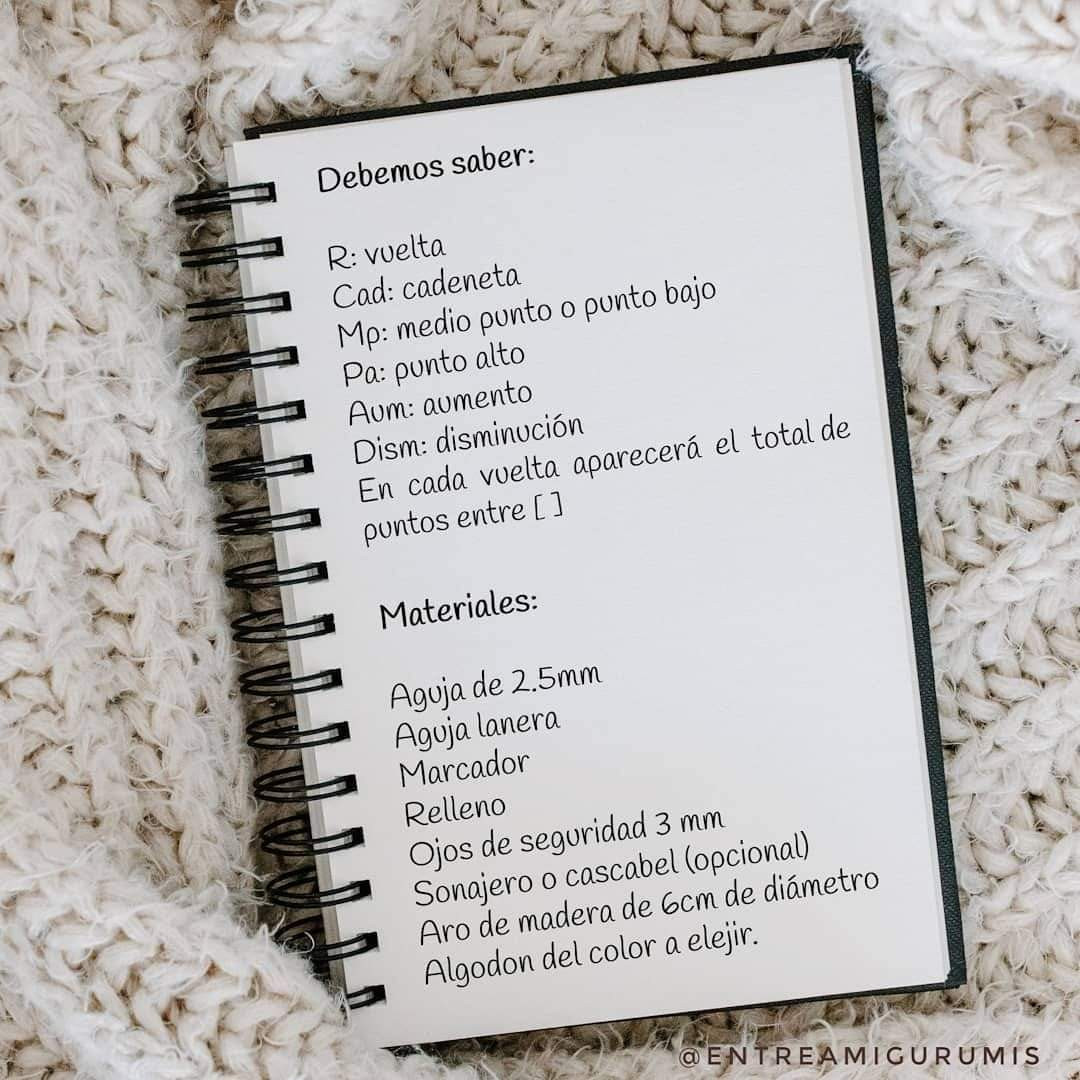 Debemos saber:
R: vuelta
Cad: cadeneta
Mp: medio punto o punto bajo
Pa: punto alto
Aum: aumento
Dism: disminución
En cada vuelta aparecerá el total de
puntos entre [ ]
Materiales:
Aguja de 2.5mm
Aguja lanera
Marcador
Relleno
Ojos de seguridad 3 mm
Sonajero o cascabel (opcional)
Aro de madera de 6cm de diámetro
Algodon del color a elejir.
@ENTREAMIGURUMIS